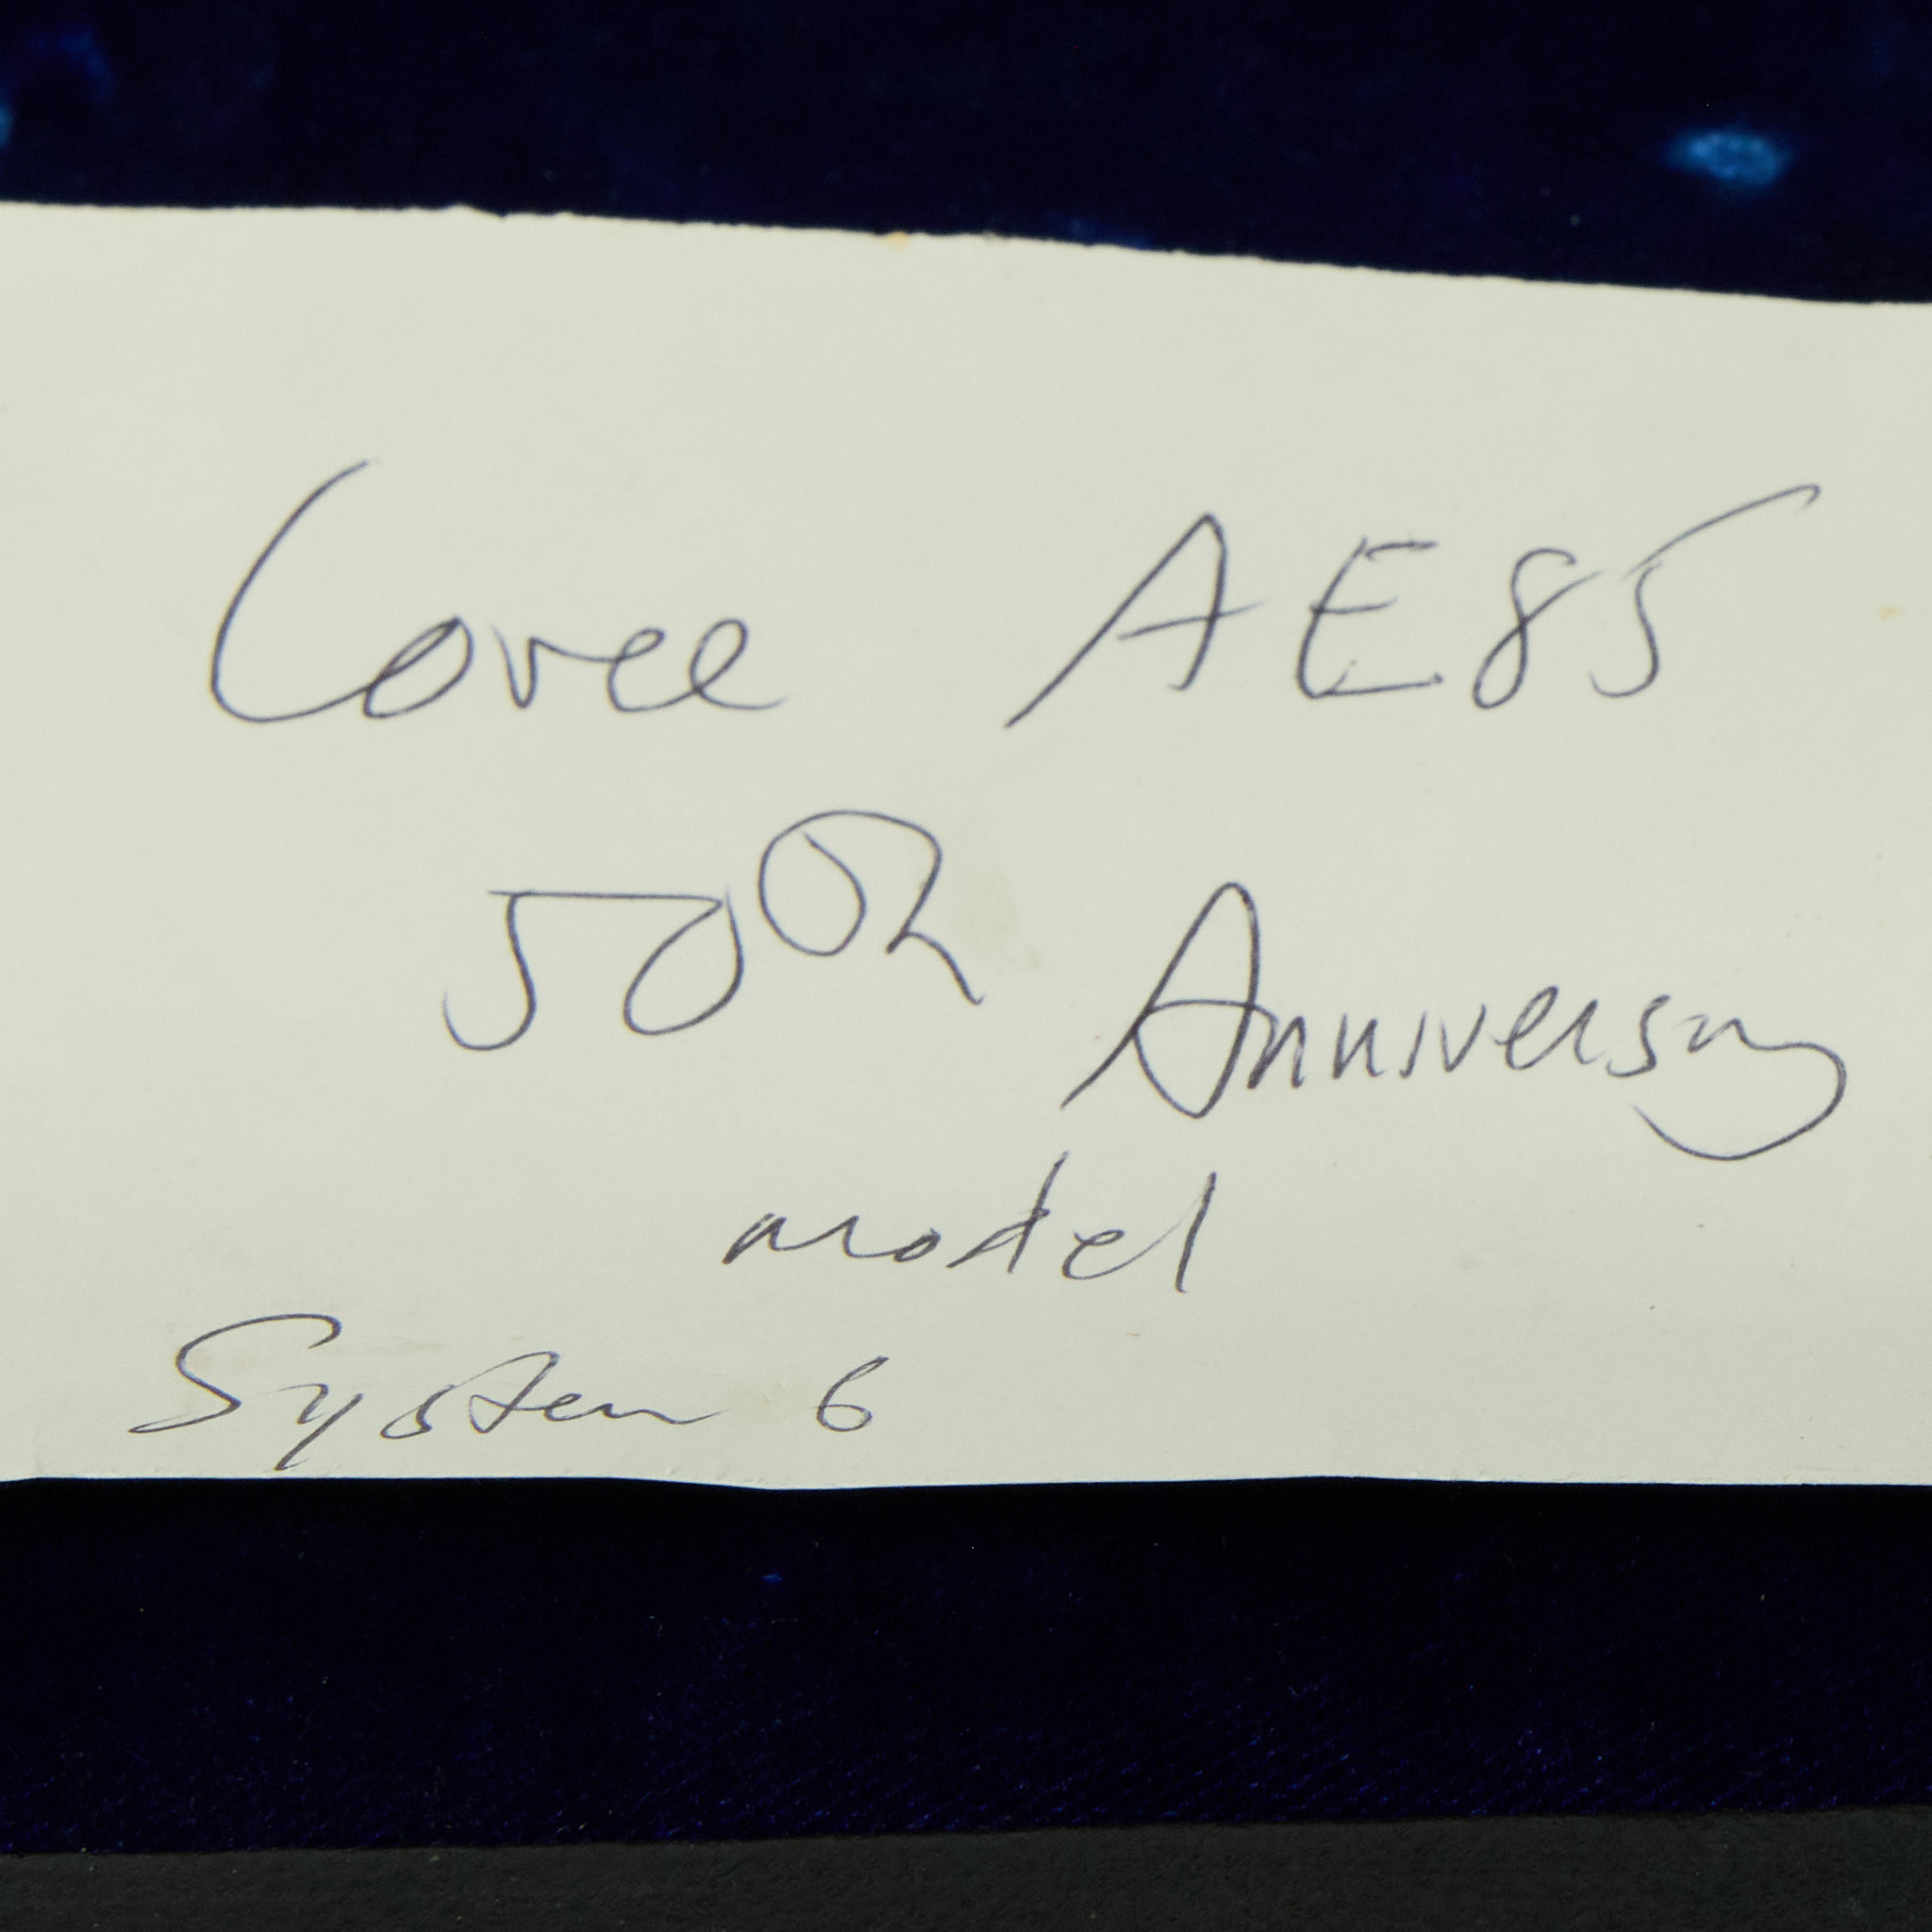 Loree AE85
50th Anniversary
model
System 6